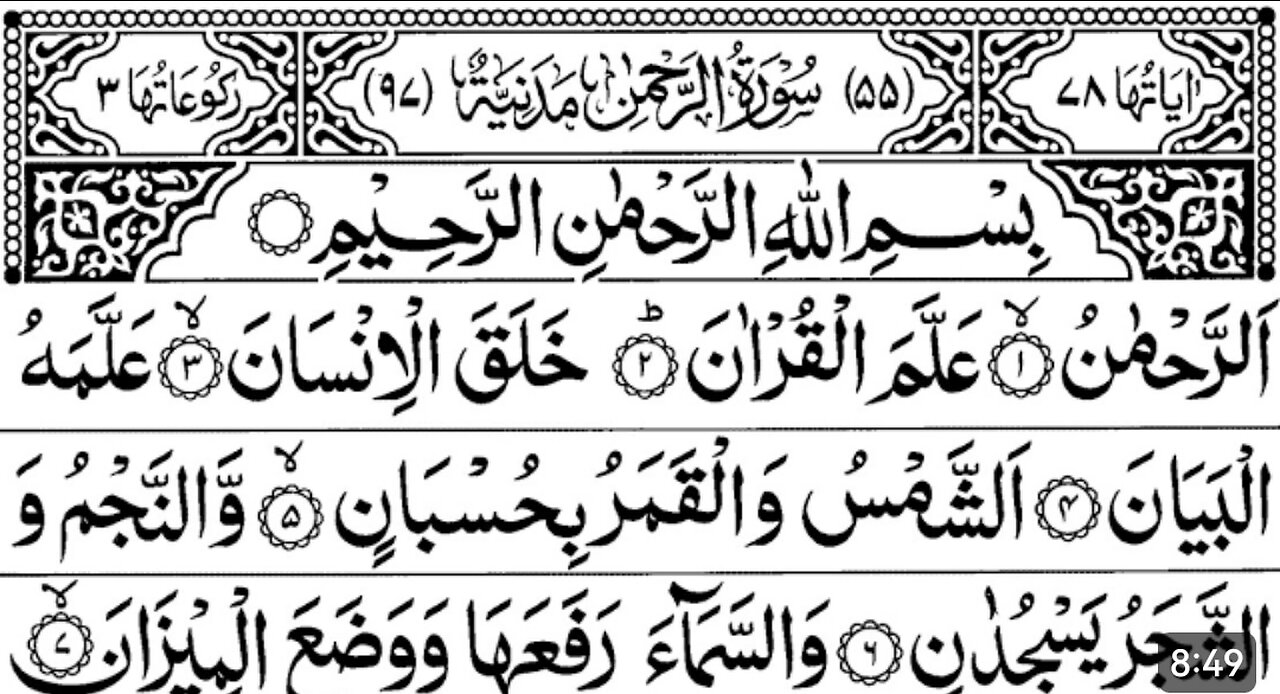 اٰيَاتُهَا ٧٨ (٥٥) سُوْرَةُ الرَّحْمٰنِ مَدَنِيَّةٌ (٩٧) رُكُوْعَاتُهَا ٣
بِسْمِ اللّٰهِ الرَّحْمٰنِ الرَّحِيْمِ
اَلرَّحْمٰنُ ۙ﴿١﴾ عَلَّمَ الْقُرْاٰنَ ؕ﴿٢﴾ خَلَقَ الْاِنْسَانَ ۙ﴿٣﴾ عَلَّمَهُ
الْبَيَانَ ﴿٤﴾ اَلشَّمْسُ وَالْقَمَرُ بِحُسْبَانٍ ۙ﴿٥﴾ وَّالنَّجْمُ وَ
الشَّجَرُ يَسْجُدٰنِ ﴿٦﴾ وَالسَّمَآءَ رَفَعَهَا وَوَضَعَ الْمِيْزَانَ ۙ﴿٧﴾
8:49